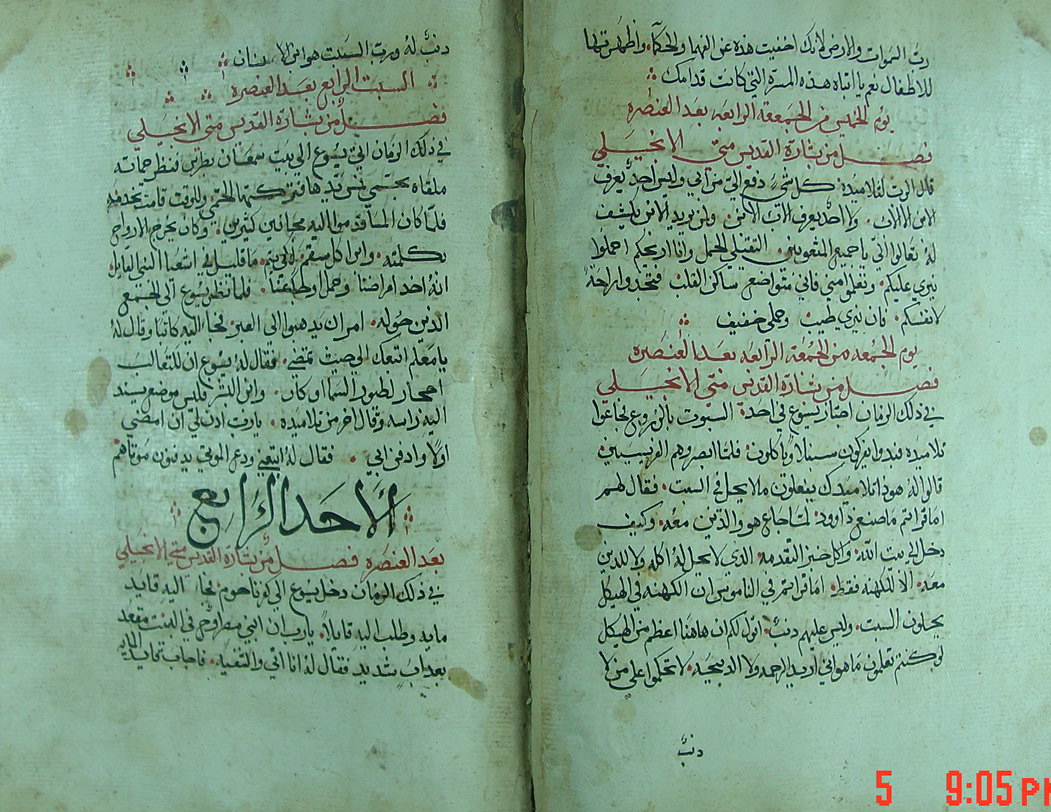 ربّ السموات والارض لانك اخفيت هذه عن الفهما والحكما واظهرتها
للاطفال نعم يا ابتاه هذه المسرة التي كانت قدامك
يوم الخميس من الجمعة الرابعه بعد العنصره
فصل من بشارة القديس متى الانجيلي
قال الرب لتلاميذه كل شي دفع الي من ابي وليس احد يعرف
الابن الا الاب ولا احد يعرف الاب الا الابن ولمن يريد الابن يكشف
له تعالوا الي يا جميع المتعوبين الثقيلي الحمل وانا اريحكم احملوا
نيري عليكم وتعلموا مني فاني متواضع ساكن القلب فتجدوا راحة
لانفسكم فان نيري طيب وحملي خفيف
يوم الجمعه من الجمعة الرابعه بعد العنصره
فصل من بشارة القديس متى الانجيلي
في ذلك الزمان اجتاز يسوع في احد السبوت بالزروع فجاعوا
تلاميذه فبدوا يفركون سنبلا وياكلون فلما ابصروهم الفريسيين
قالوا له هوذا تلاميذك يفعلون ما لا يحل في السبت فقال لهم
اما قراتم ما صنع داوود لما جاع هو والذين معه وكيف
دخل الى بيت الله واكل خبز التقدمه الذي لا يحل له اكله ولا للذين
معه الا للكهنه فقط اما قراتم في الناموس ان الكهنه في الهيكل
يحلون السبت وليس عليهم ذنب اقول لكم ان هاهنا اعظم من الهيكل
لو كنتم تعلمون ما هو اني اريد الرحمه ولا الذبيحه لا تحكموا على من لا
ذنب
ذنب له ورب السبت هو ابن الانسان
السبت الرابع بعد العنصره
فصل من بشارة القديس متى الانجيلي
في ذلك الزمان اتى يسوع الى بيت سمعان بطرس فنظر حماته
ملقاه تحتمي فتركتها الحمى وللوقت قامت تخدمه
فلما كان المسا قدموا اليه مجانين كثيرين وكان يخرج الارواح
بكلمته وابرا كل سقم لكي يتم ما قيل في اشعيا النبي القايل
انه اخذ امراضنا وحمل اوجاعنا فلما نظر يسوع الى الجمع
الذين حوله امر ان يذهبوا الى العبر فجا اليه كاتبا وقال له
يا معلم اتبعك الى حيث تمضي فقال له يسوع ان للثعالب
احجار لطيور السما اوكار وابن البشر فليس موضع يسند
اليه راسه وقال اخر من تلاميذه يا رب ادن لي ان امضي
اولا وادفن ابي فقال له اتبعني ودع الموتى يدفنون موتاهم
الاحد الرابع
بعد العنصره فصل من بشارة القديس متى الانجيلي
في ذلك الزمان دخل يسوع الى كفرناحوم فجا اليه قايد
مايه وطلب اليه قايلا يا رب ان فتاي مطروح في البيت مقعد
بعداب شديد فقال له انا اتي واشفيه فاجاب قايد المايه
5 9:05 PM